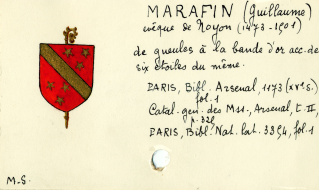 MARAFIN (Guillaume)
évêque de Noyon (1473-1501)
de gueules à la bande d'or acc. de
six étoiles du même.
PARIS, Bibl. Arsenal 1173 (XVe s.)
fol. 1
Catal. gén. des Mss., Arsenal, t. II,
p. 329
PARIS, Bibl. Nat. lat. 3394, fol. 1
M.S.